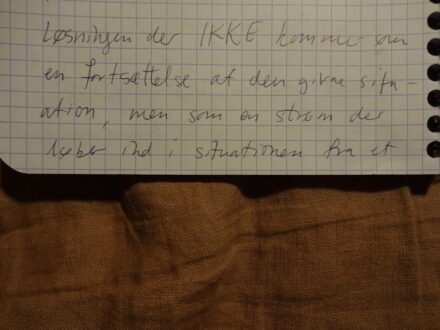 Løsningen der IKKE kommer som
en fortsættelse af den givne situ-
ation, men som en strøm der
løber ind i situationen fra et